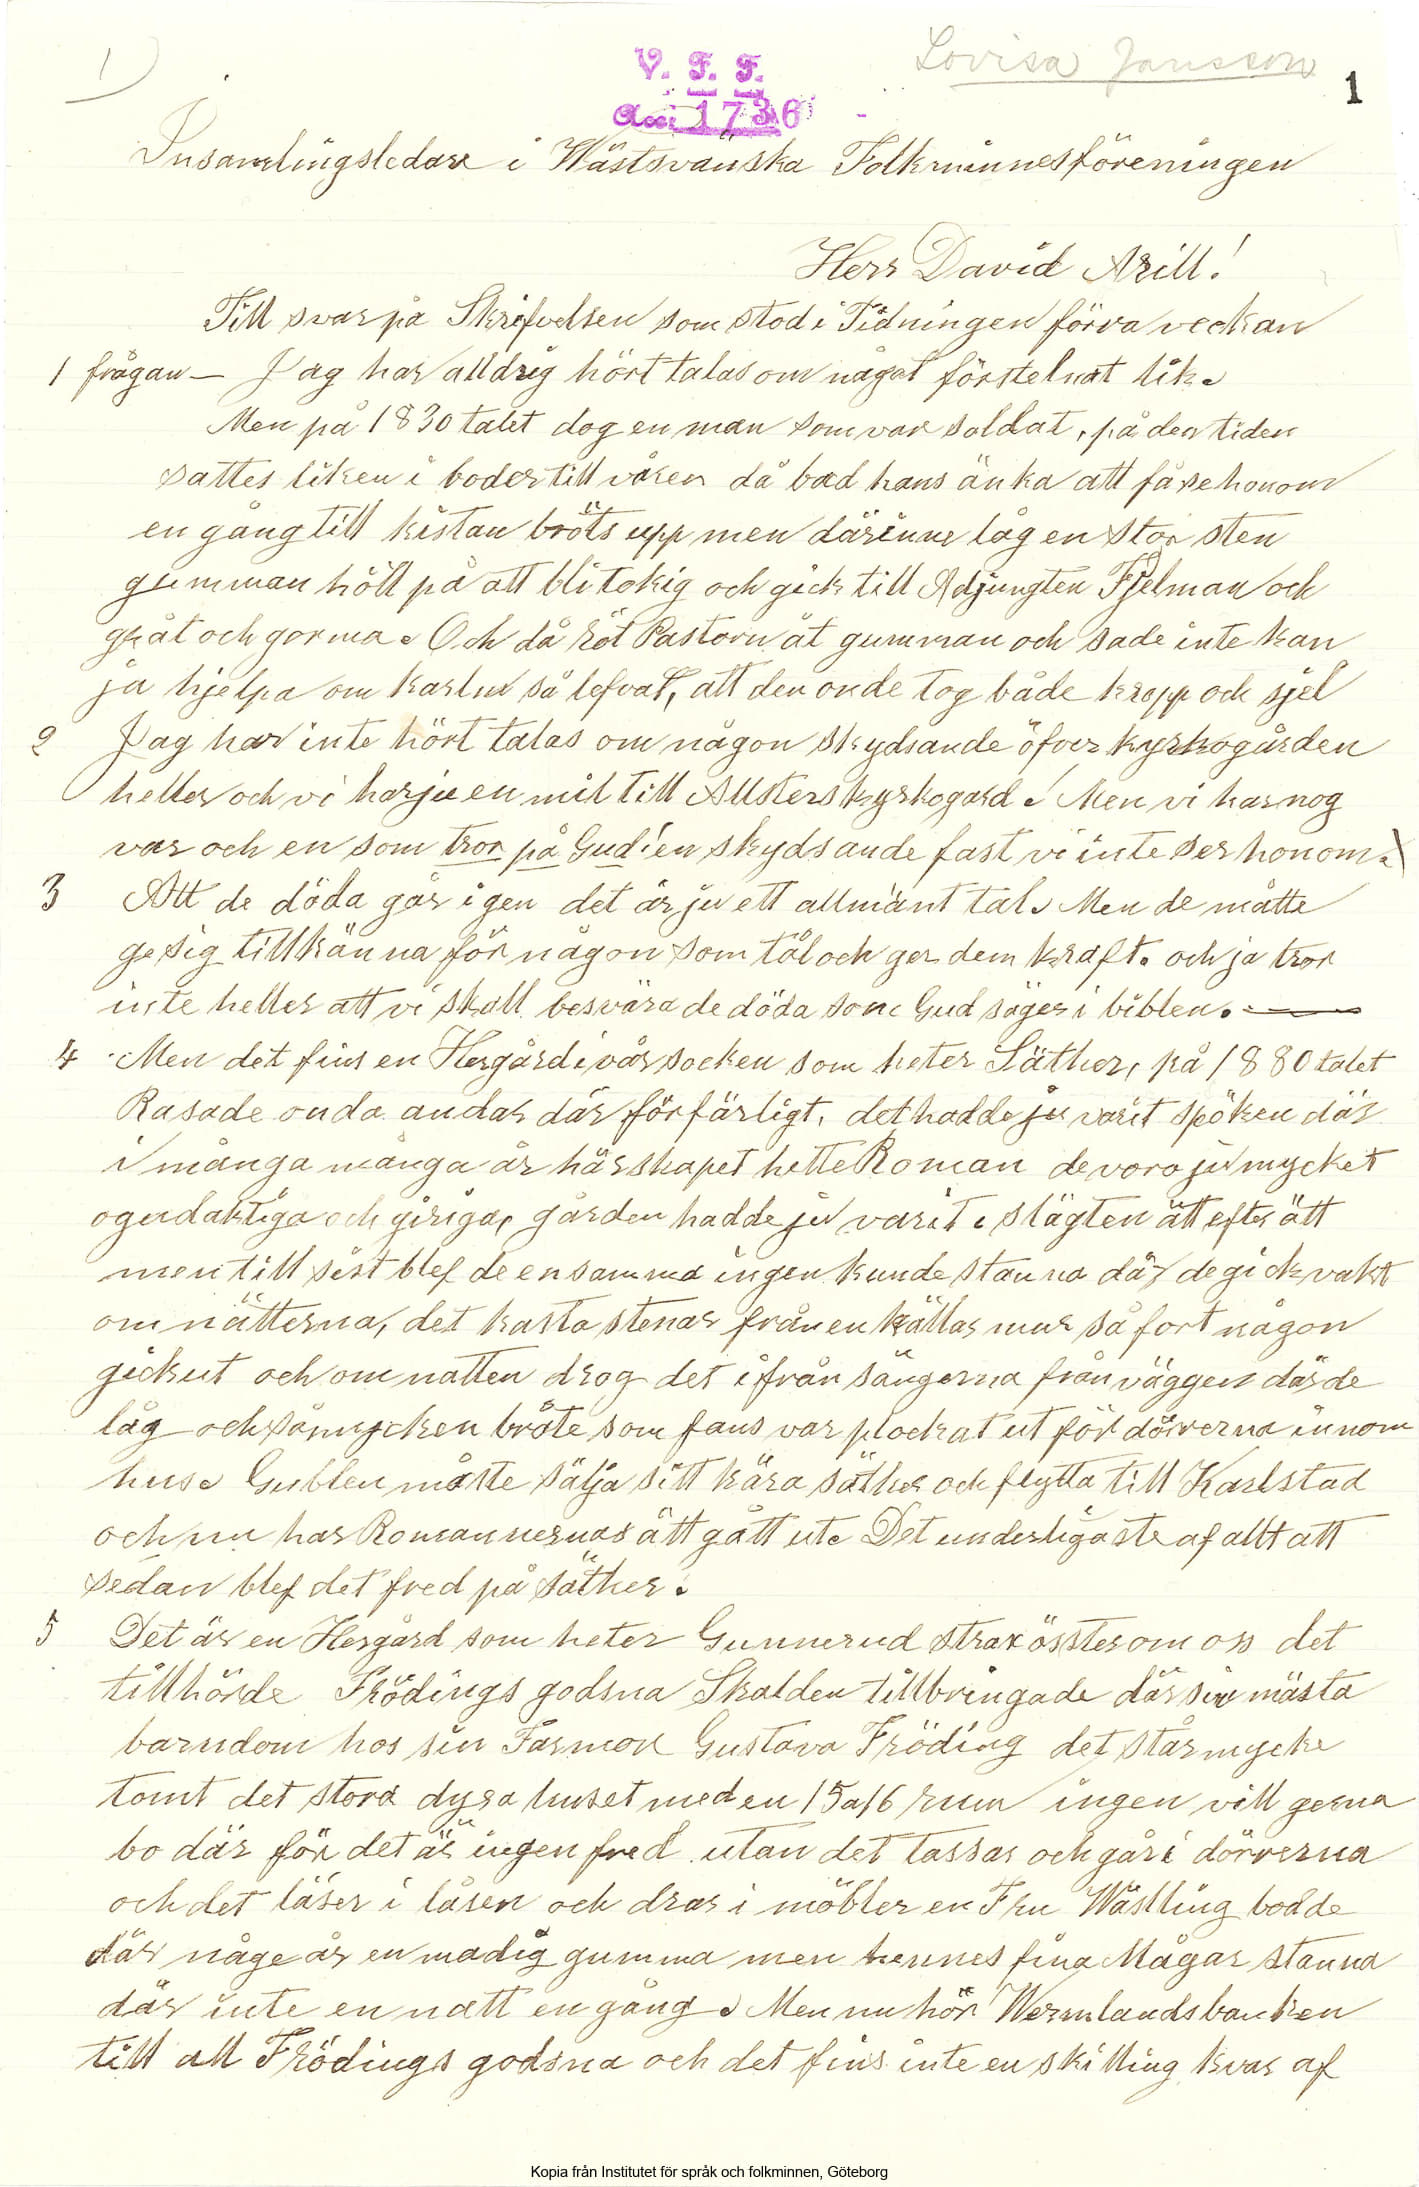 1)
Lovisa Jansson
1
V. F. F.
Acc: 1736
Insamlingsledare i Wästsvänska Folkminnesföreningen
Herr David Arill!
Till svar på Skrifvelsen som stod i Tidningen förra veckan
1 frågan — Jag har alldrig hört talas om något förstelnat lik.
Men på 1830 talet dog en man som var soldat, på den tiden
sattes liken i boder till våren då bad hans änka att få se honom
en gång till kistan bröts upp men därinne låg en stor sten
gumman höll på att bli tokig och gick till Adjungten Fjelman och
gråt och gorma. Och då röt Pastorn åt gumman och sade inte kan
ja hjelpa om karln så lefvat, att den onde tog både kropp och sjel
2 Jag har inte hört talas om någon skydsande öfver kyrkogården
heller och vi har ju en mil till Allsters kyrkogård. Men vi har nog
var och en som tror på Gud en skydsande fast vi inte ser honom.
3 Att de döda går igen det är ju ett allmänt tal. Men de måtte
ge sig tillkänna för någon som tål och ger dem kraft. och ja tror
inte heller att vi skall besvära de döda som Gud säger i biblen. —
4 Men det fins en Hergård i vår socken som heter Säther, på 1880 talet
Rasade onda andar där förfärligt, det hadde ju varit spöken där
i många många år härskapet hette Roman de voro ju mycket
ogudaktiga och giriga, gården hadde ju varit i slägten ätt efter ätt
men till sist blef de ensamma ingen kunde stanna där de gick vakt
om nätterna, det kasta stenar från en källar mur så fort någon
gick ut och om natten drog det ifrån sängerna från väggen där de
låg och så mycken bröte som fans var plockat ut för dörrerna innom
hus. Gubben måste sälja sitt kära säther och flytta till Karlstad
och nu har Romannernas ätt gått ut. Det underligaste af allt att
sedan blef det fred på säther.
5 Det är en Hergård som heter Gunnerud strax össter om oss det
tillhörde Frödings godsna Skalden tillbringade där sin mästa
barndom hos sin Farmor Gustava Fröding det står mycke
tomt det stora dyra huset med en 15 a 16 rum ingen vill gerna
bo där för det är ingen fred utan det tassar och går i dörrerna
och det läser i låsen och drar i möbler en Fru Wästling bodde
där någe år en modig gumma men hennes fina Mågar stanna
där inte en natt en gång. Men nu hör Wermlandsbanken
till all Frödings godsna och det fins inte en skilling kvar af
Kopia från Institutet för språk och folkminnen, Göteborg